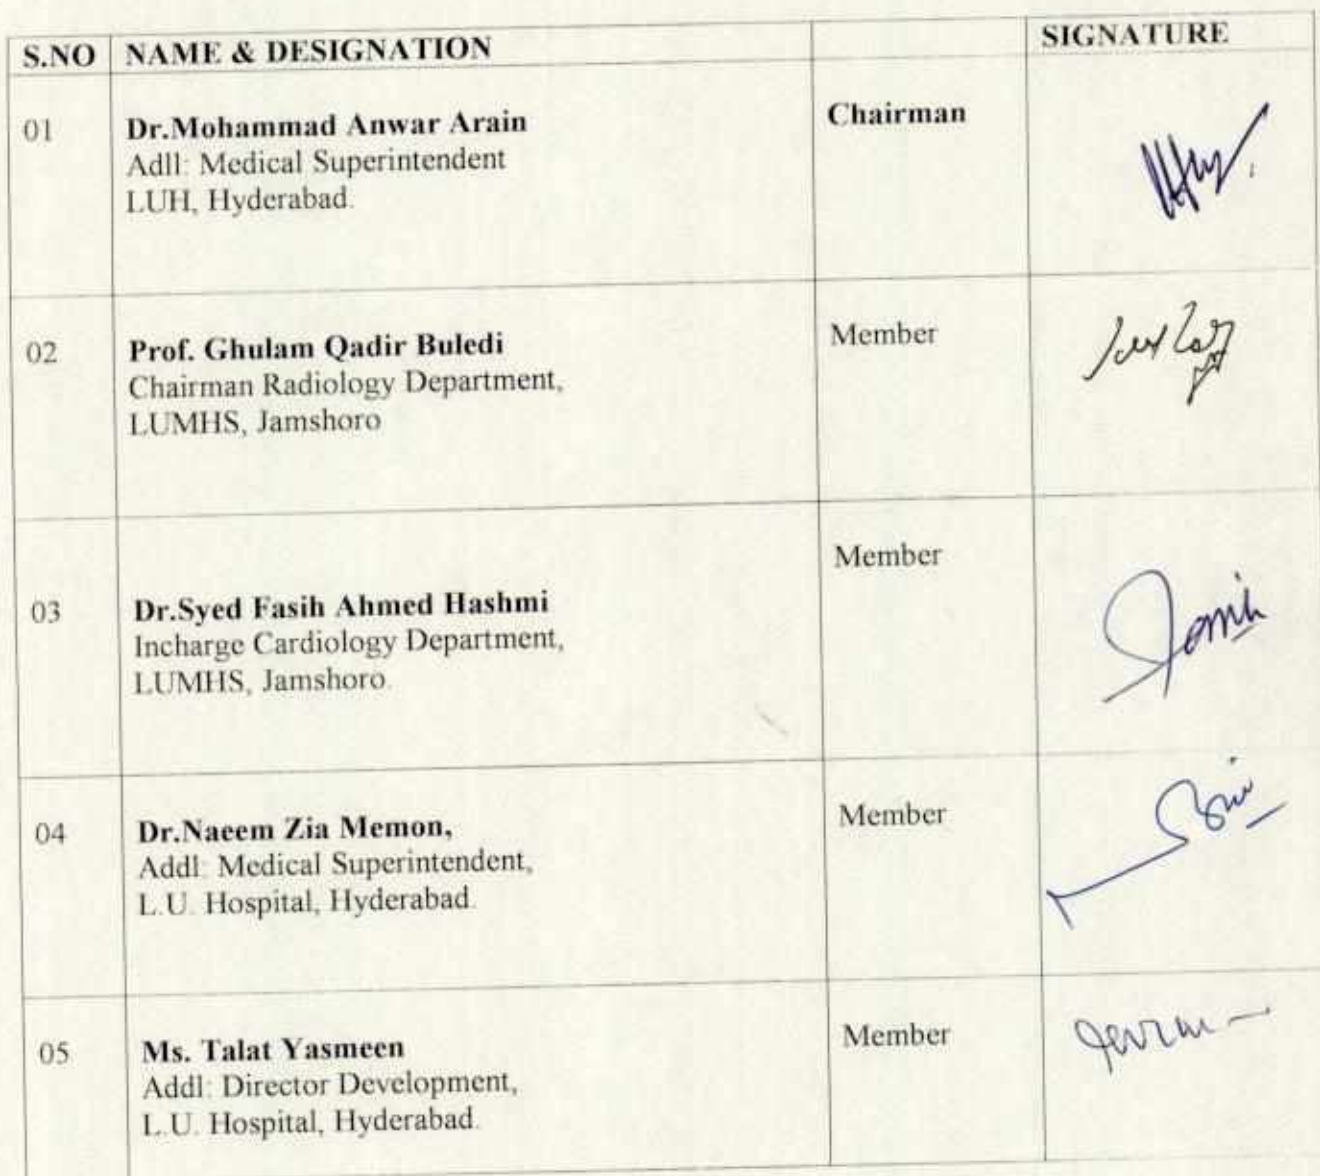 S.NO NAME & DESIGNATION SIGNATURE
01 Dr.Mohammad Anwar Arain Chairman
Adll: Medical Superintendent
LUH, Hyderabad.
02 Prof. Ghulam Qadir Buledi Member
Chairman Radiology Department,
LUMHS, Jamshoro
Member
03 Dr.Syed Fasih Ahmed Hashmi
Incharge Cardiology Department,
LUMHS, Jamshoro.
04 Dr.Naeem Zia Memon, Member
Addl: Medical Superintendent,
L.U. Hospital, Hyderabad.
05 Ms. Talat Yasmeen Member
Addl: Director Development,
L.U. Hospital, Hyderabad.